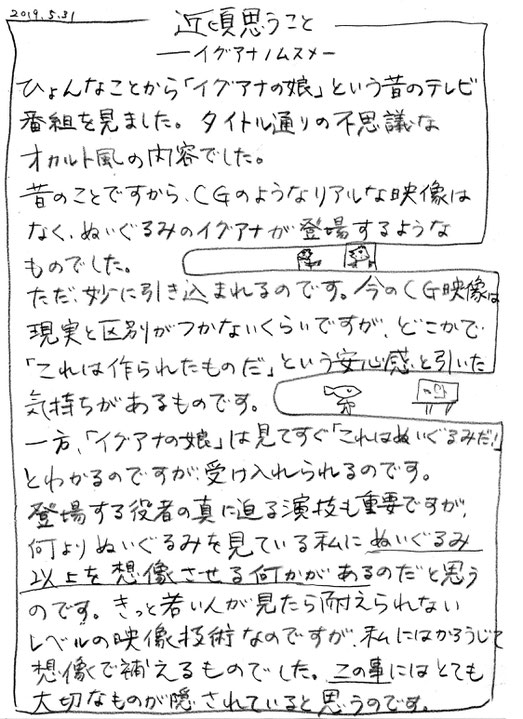 2019.5.31
近頃思うこと
―イグアナノムスメ―
ひょんなことから「イグアナの娘」という昔のテレビ
番組を見ました。タイトル通りの不思議な
オカルト風の内容でした。
昔のことですから、CGのようなリアルな映像は
なく、ぬいぐるみのイグアナが登場するような
ものでした。
ただ、妙に引き込まれるのです。今のCG映像は
現実と区別がつかないくらいですが、どこかで
「これは作られたものだ」という安心感と引いた
気持ちがあるものです。
一方、「イグアナの娘」は見てすぐ「これはぬいぐるみだ!」
とわかるのですが、受け入れられるのです。
登場する役者の真に迫る演技も重要ですが、
何よりぬいぐるみを見ている私にぬいぐるみ
以上を想像させる何かがあるのだと思う
のです。きっと若い人が見たら耐えられない
レベルの映像技術なのですが、私にはかろうじて
想像で補えるものでした。この事にはとても
大切なものが隠されていると思うのです。